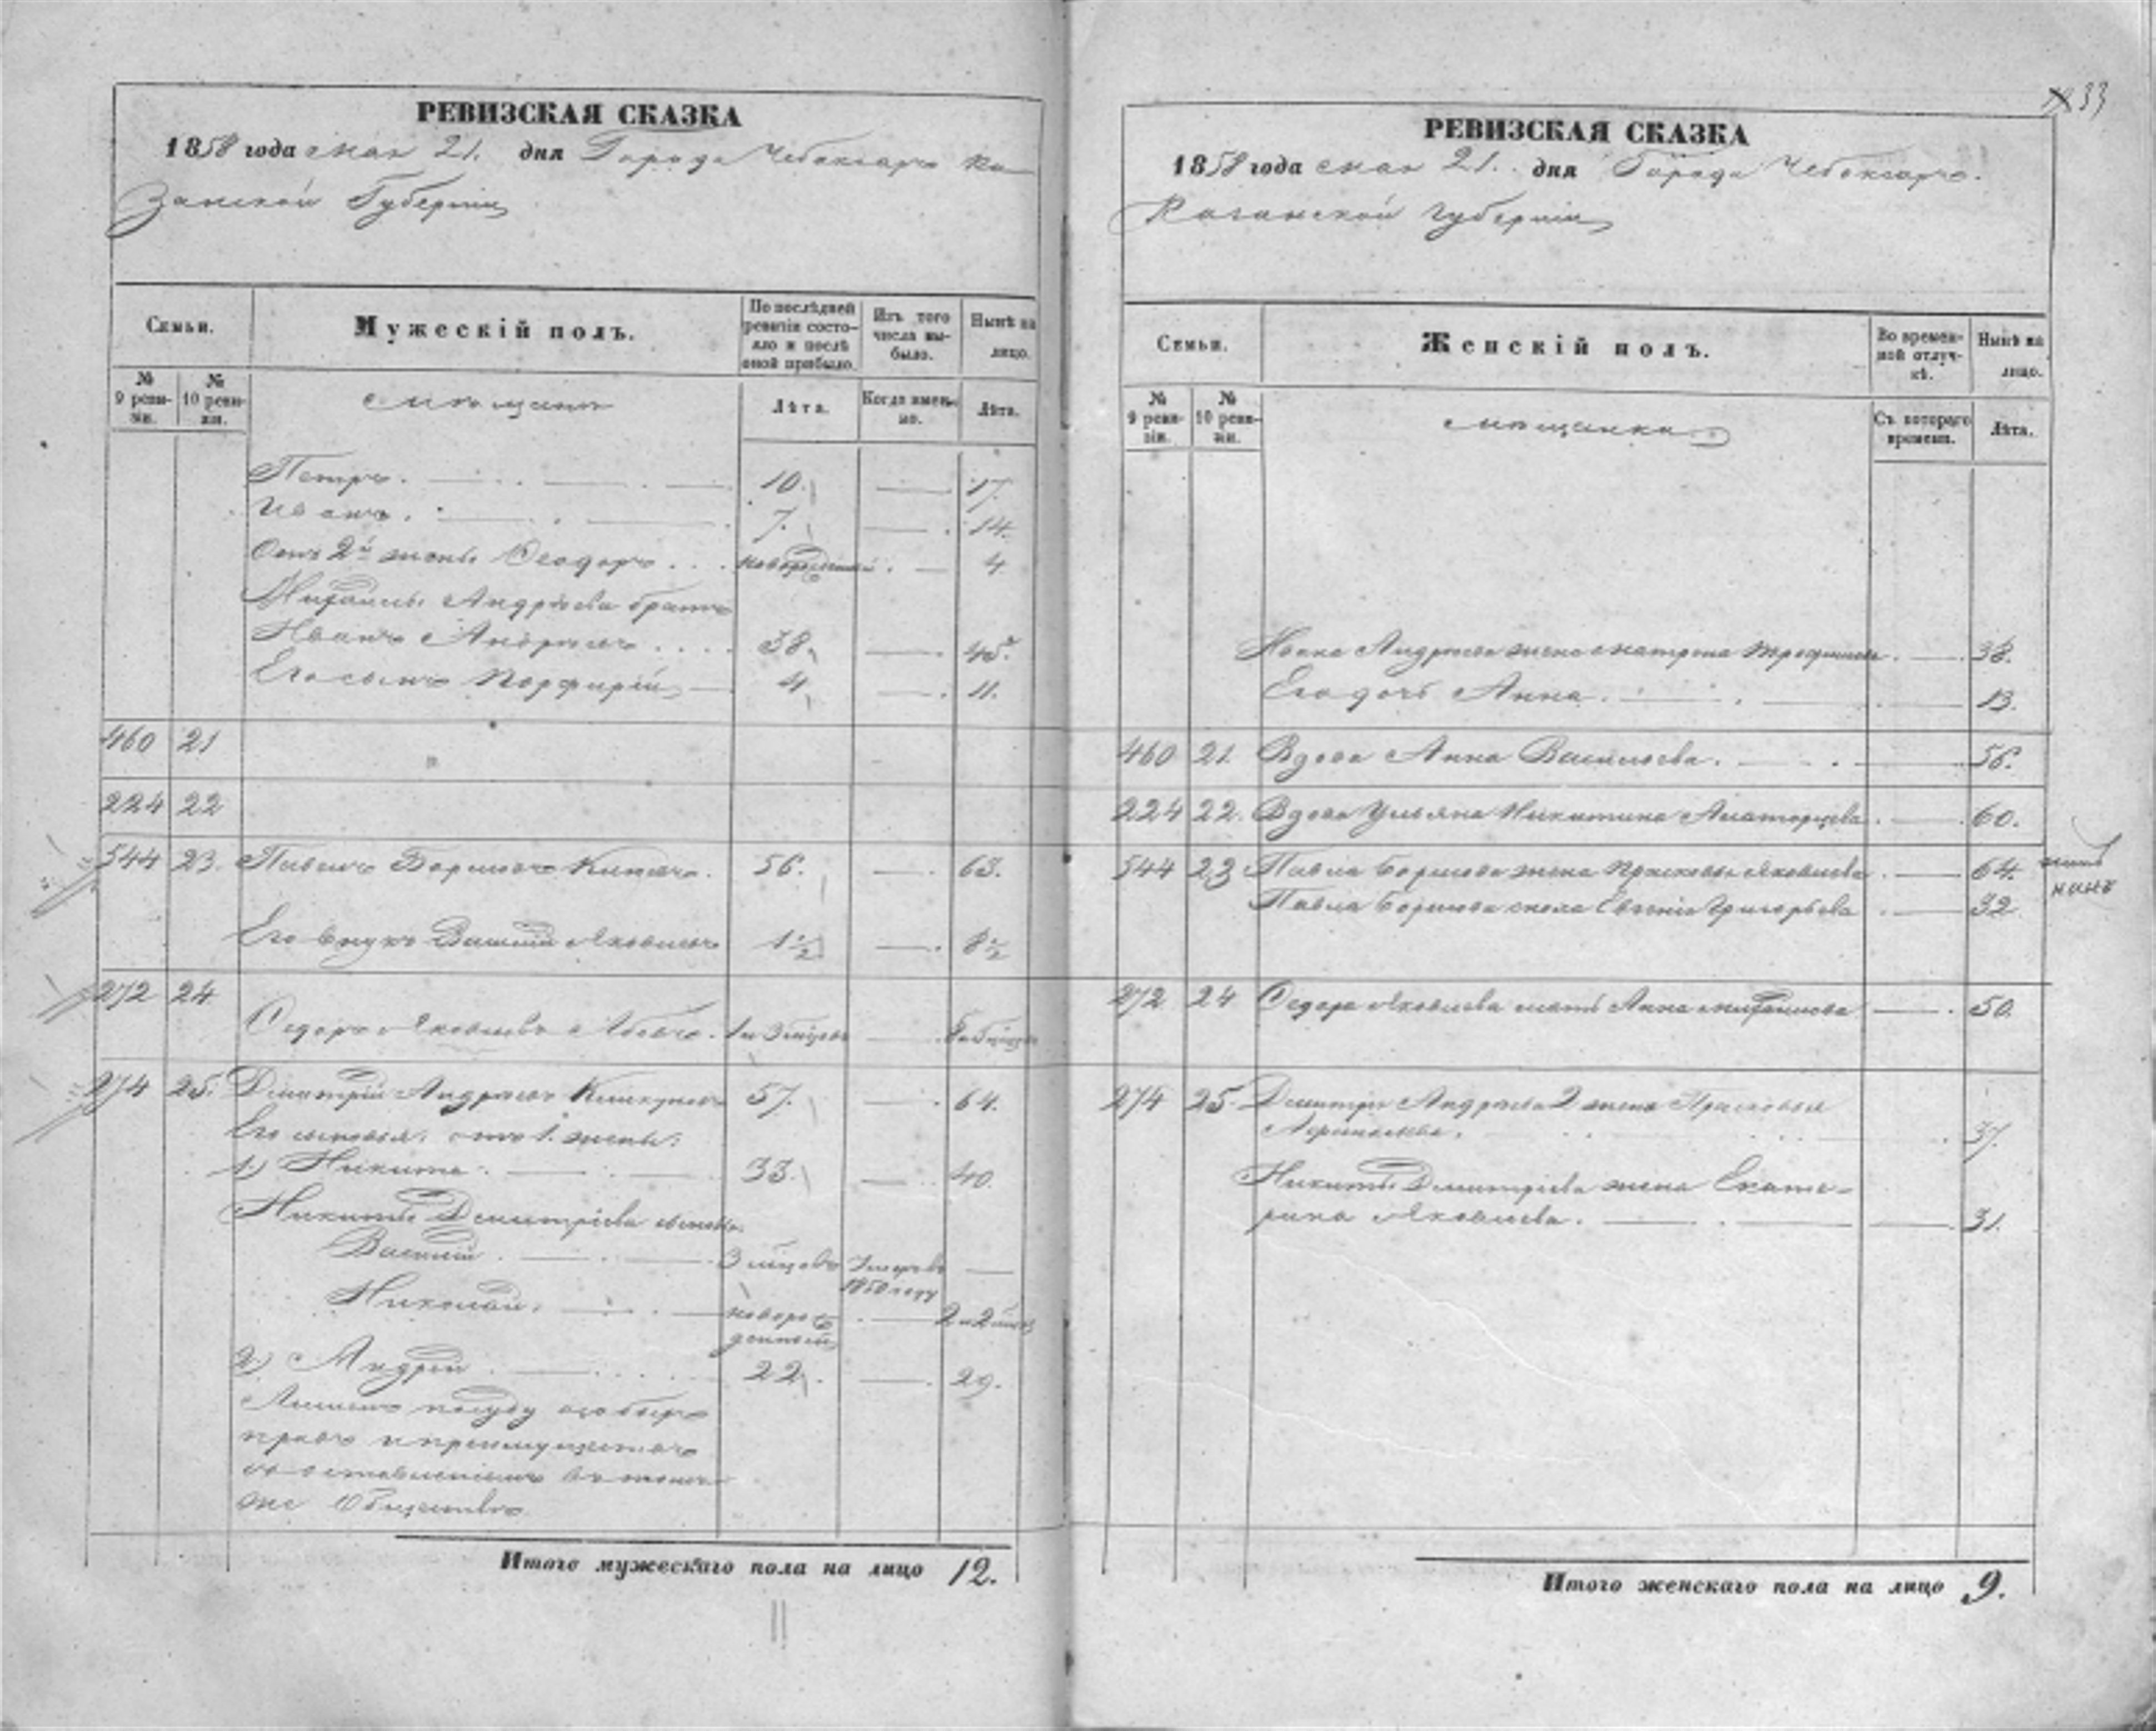 33
РЕВИЗСКАЯ СКАЗКА
1858 года мая 21. дня Города Чебоксаръ Ка-
занской Губерніи
Семьи.
Мужескій полъ.
По послѣдней ревизіи состояло и послѣ оной прибыло.
Изъ того числа выбыло.
Нынѣ на лицо.
№ 9 ревизіи.
№ 10 ревизіи.
мѣщанъ
Лѣта.
Когда именно.
Лѣта.
Петръ. 10. 17.
Иванъ. 7. 14.
Отъ 2й жены Ѳеодоръ новорожденный 4
Михаилы Андрѣева братъ
Иванъ Андрѣевъ 38. 45.
Его сынъ Порфирій 4 11.
460 21
224 22
544 23. Павелъ Борисовъ 56. 63.
Его внукъ Василій Яковлевъ 1 1/2 8 1/2
272 24
Ѳедоръ Яковлевъ 1 и 3 мѣсяцовъ
274 25. Дмитрій Андрѣевъ 57. 64.
Его сыновья: отъ 1. жены:
1) Никита. 33. 40.
Никиты Дмитріева сыновья
Василій 3 мѣсяцовъ Умеръ въ
1850 году
Николай. новорож-
денный 2 и 2
2) Андрей 22. 29.
Лишенъ по суду особыхъ
правъ и преимуществъ
съ оставленіемъ въ томъ
же Обществѣ
Итого мужескаго пола на лицо 12.
11
РЕВИЗСКАЯ СКАЗКА
1858 года мая 21. дня Города Чебоксаръ.
Казанской губерніи
Семьи.
Женскій полъ.
Во временной отлучкѣ.
Нынѣ на лицо.
№ 9 ревизіи.
№ 10 ревизіи.
мѣщанки
Съ котораго времени.
Лѣта.
Ивана Андрѣева жена Матрена 38.
Его дочь Анна. 13.
460 21. Вдова Анна Васильева. 56.
224 22. Вдова Ульяна Никитина 60.
544 23 Павла Борисова жена Прасковья Яковлева 64.
Павла Борисова сноха Евгенія Григорьева 32
272 24 Ѳедора Яковлева мать Анна Михайлова 50.
274 25. Дмитрія Андрѣева 2 жена Прасковья
37.
Никиты Дмитріева жена Екате-
рина Яковлева. 31.
Итого женскаго пола на лицо 9.